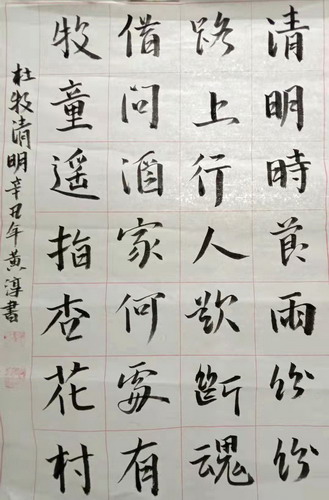 清明時節雨紛紛
路上行人欲斷魂
借問酒家何處有
牧童遥指杏花村
杜牧清明辛丑年黄淳書